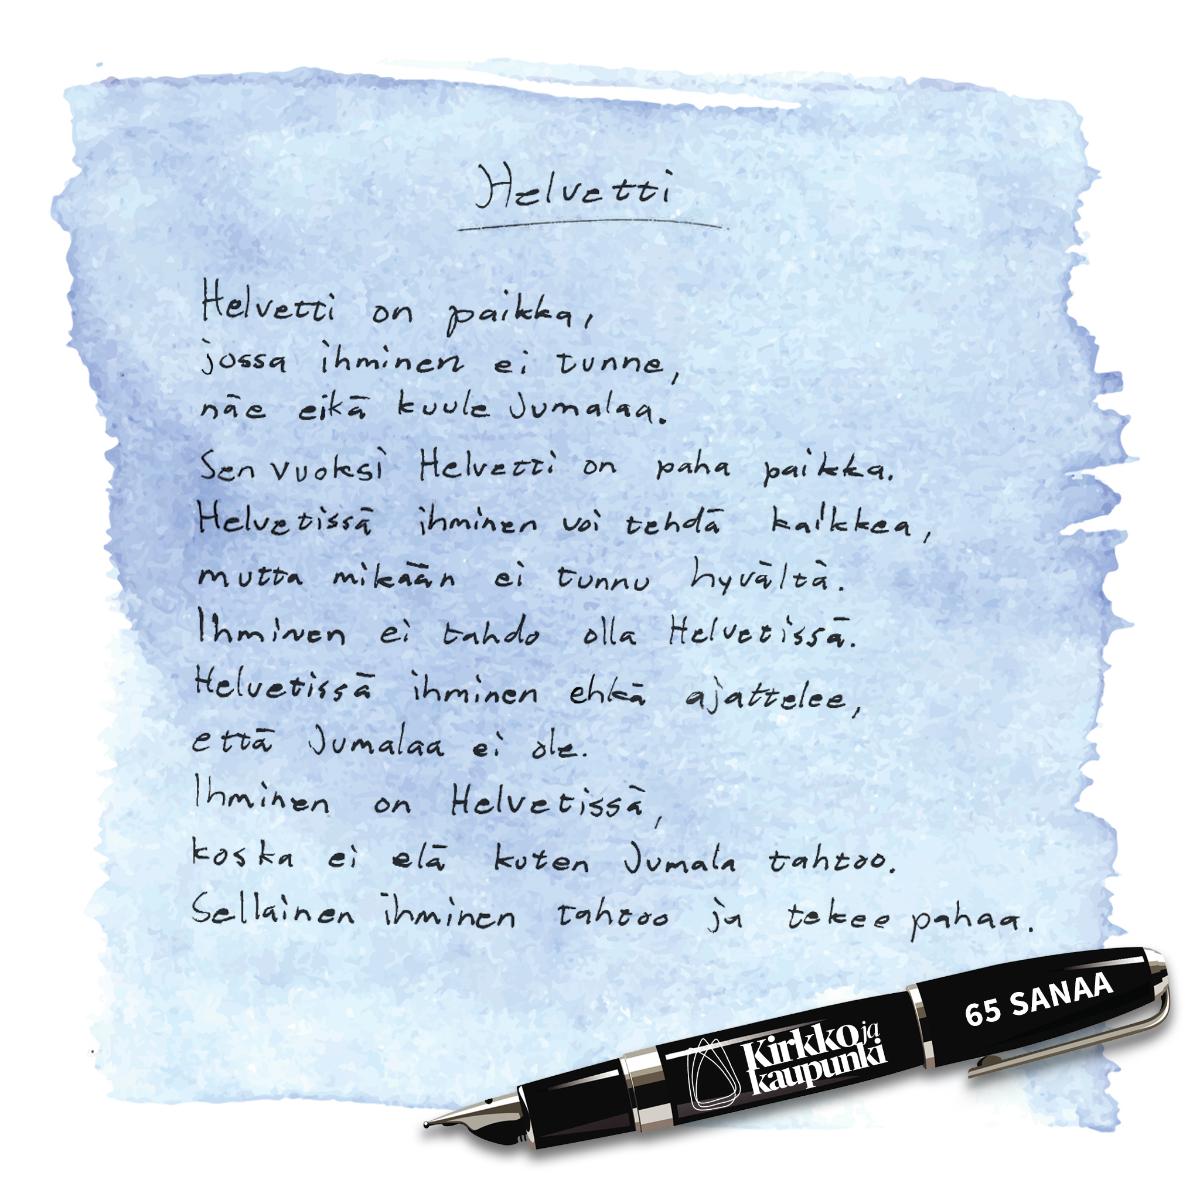 Helvetti
Helvetti on paikka,
jossa ihminen ei tunne,
näe eikä kuule Jumalaa.
Sen vuoksi Helvetti on paha paikka.
Helvetissä ihminen voi tehdä kaikkea,
mutta mikään ei tunnu hyvältä.
Ihminen ei tahdo olla Helvetissä.
Helvetissä ihminen ehkä ajattelee,
että Jumalaa ei ole.
Ihminen on Helvetissä,
koska ei elä kuten Jumala tahtoo.
Sellainen ihminen tahtoo ja tekee pahaa.
65 SANAA
Kirkko ja
kaupunki